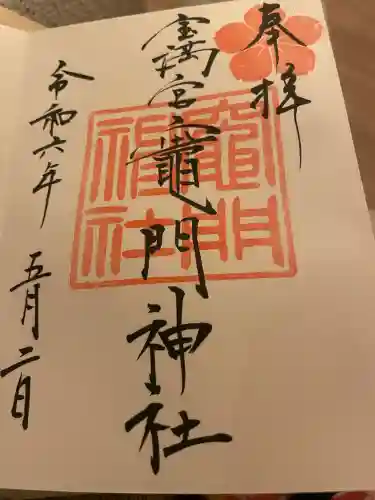 奉拝
宝満宮竈門神社
竈門
神社
令和六年
五月二日